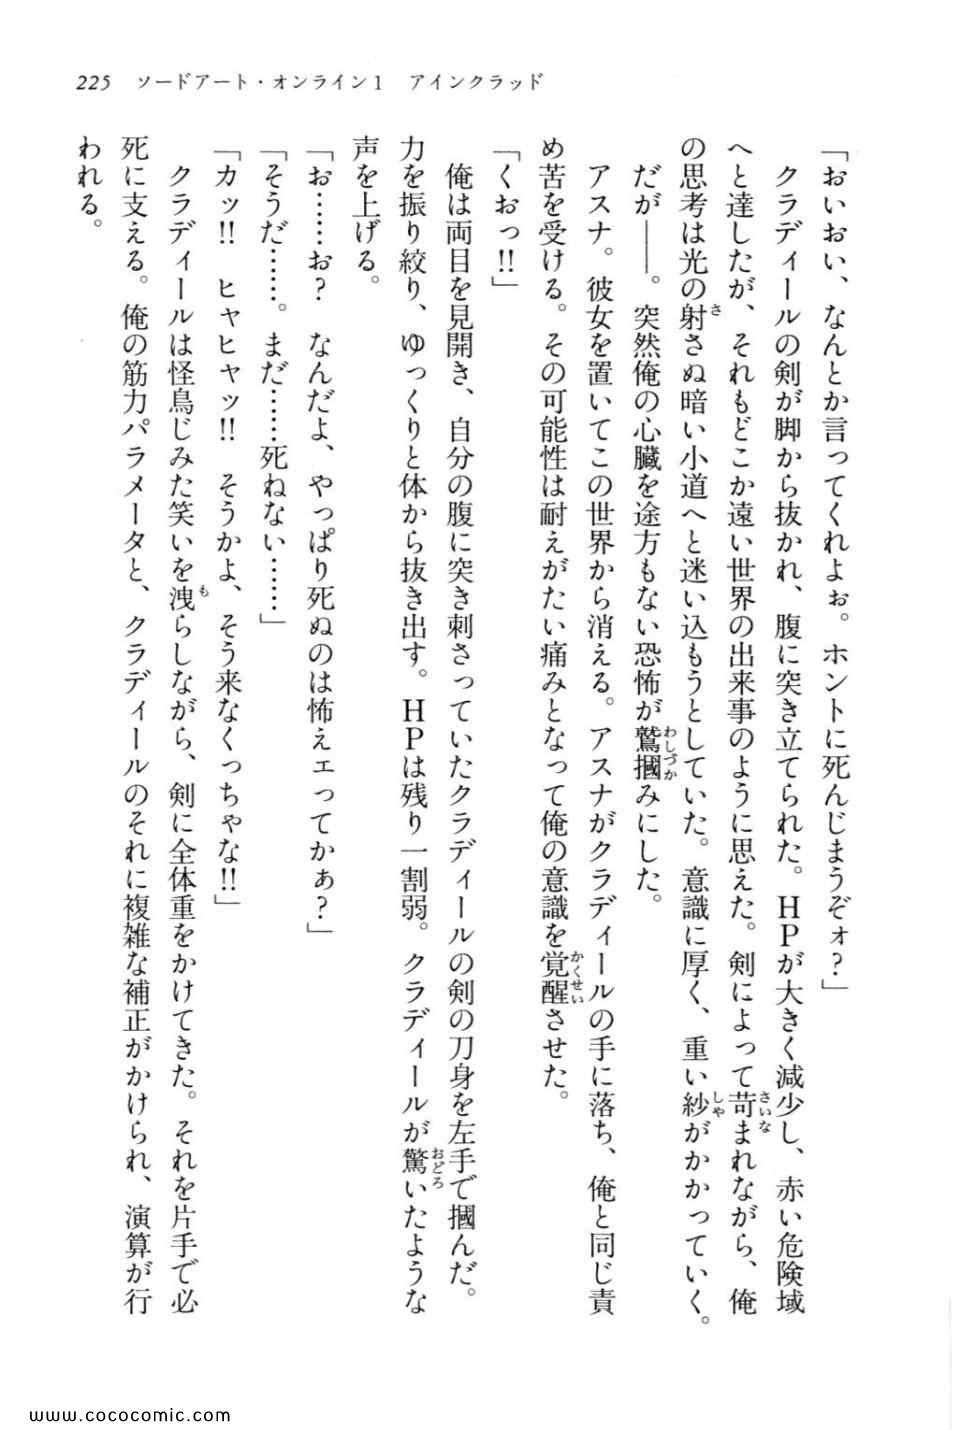 225　ソードアート・オンライン1　アインクラッド
「おいおい、なんとか言ってくれよぉ。ホントに死んじまうぞォ?」
　クラディールの剣が脚から抜かれ、腹に突き立てられた。HPが大きく減少し、赤い危険域
へと達したが、それもどこか遠い世界の出来事のように思えた。剣によって苛まれながら、俺
の思考は光の射さぬ暗い小道へと迷い込もうとしていた。意識に厚く、重い紗がかかっていく。
　だが――。突然俺の心臓を途方もない恐怖が鷲摑みにした。
　アスナ。彼女を置いてこの世界から消える。アスナがクラディールの手に落ち、俺と同じ責
め苦を受ける。その可能性は耐えがたい痛みとなって俺の意識を覚醒させた。
「くおっ!!」
　俺は両目を見開き、自分の腹に突き刺さっていたクラディールの剣の刀身を左手で摑んだ。
力を振り絞り、ゆっくりと体から抜き出す。HPは残り一割弱。クラディールが驚いたような
声を上げる。
「お……お?　なんだよ、やっぱり死ぬのは怖ぇェってかぁ?」
「そうだ……。まだ……死ねない……」
「カッ!!　ヒャヒャッ!!　そうかよ、そう来なくっちゃな!!」
　クラディールは怪鳥じみた笑いを洩らしながら、剣に全体重をかけてきた。それを片手で必
死に支える。俺の筋力パラメータと、クラディールのそれに複雑な補正がかけられ、演算が行
われる。
www.cococomic.com